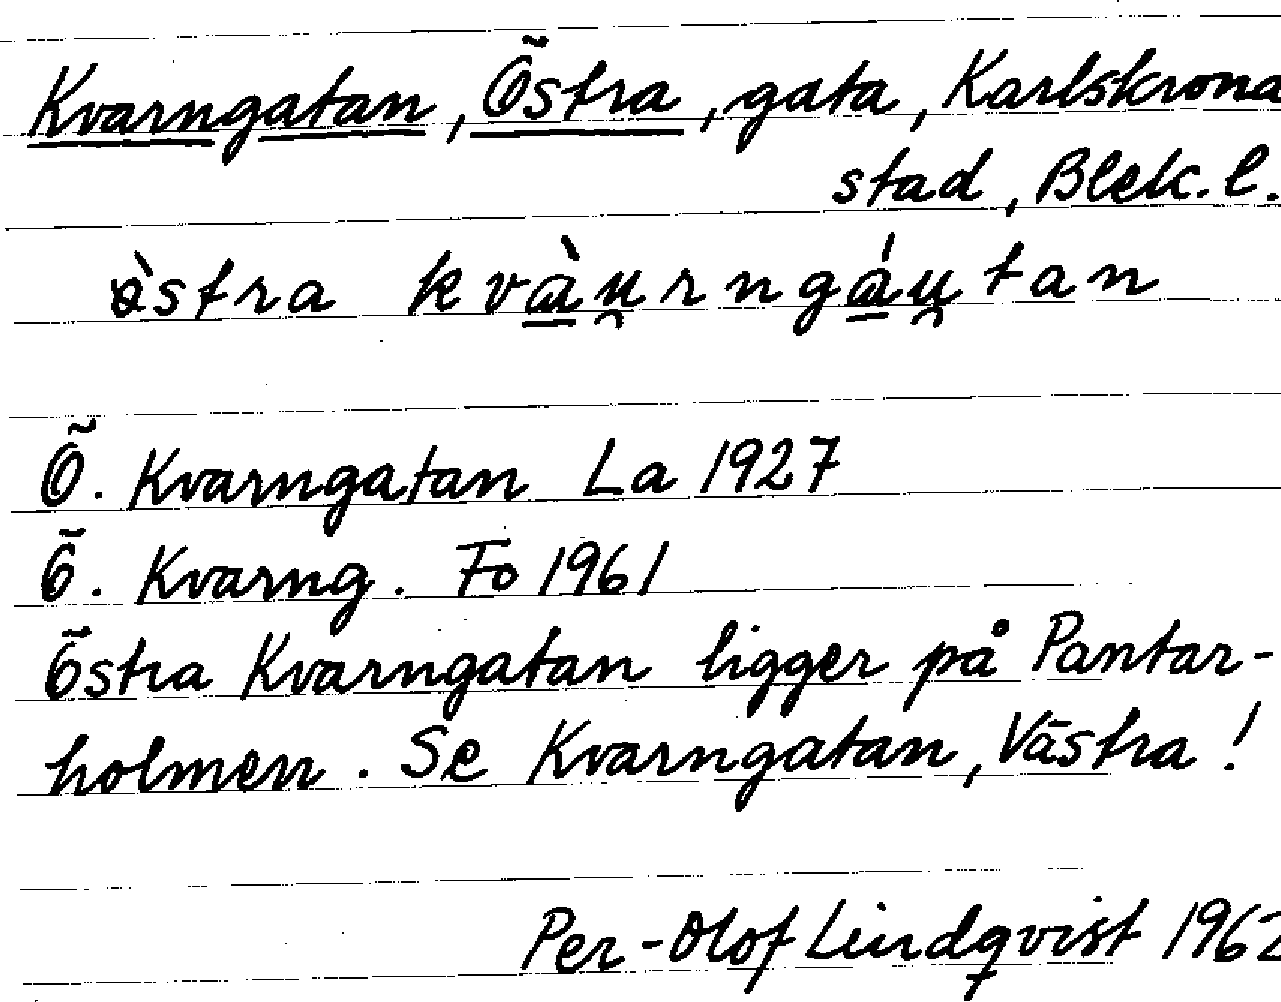 Kvarngatan, Östra, gata, Karlskrona
stad, Blek. l.
östra kvàu̯rngáu̯tan
Ö. Kvarngatan La 1927
Ö. Kvarng. Fo 1961
Östra Kvarngatan ligger på Pantar-
holmen. Se Kvarngatan, Västra!
Per-Olof Lindqvist 1962